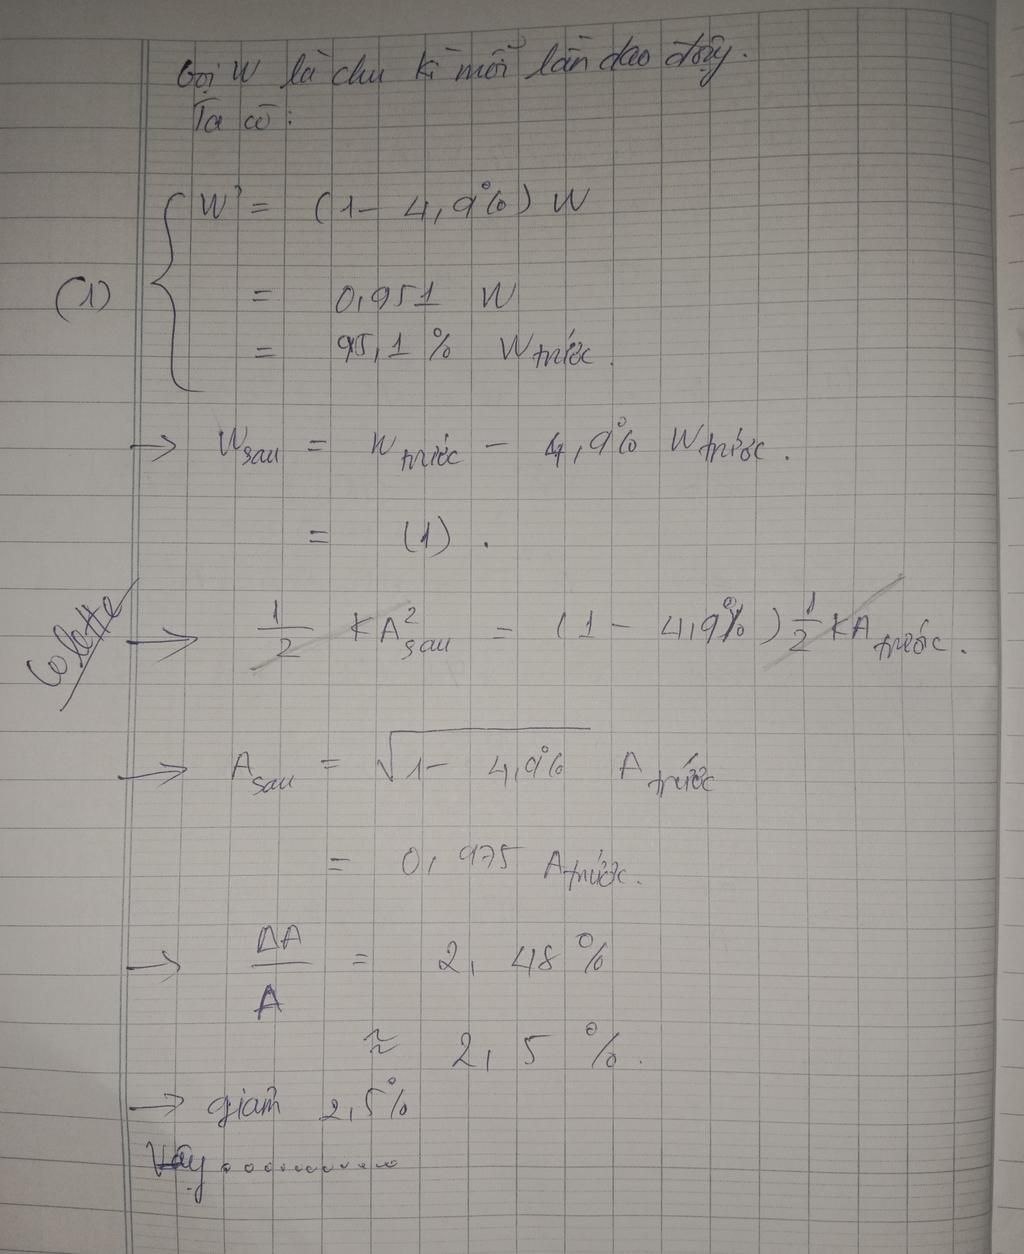 Gọi W là chu kì mỗi lần dao động.
Ta có:
W' = (1 - 4,9%) W
(1)
= 0,951 W
= 95,1 % W trước.
→ W sau = W trước - 4,9% W trước.
= (1).
Colette
→ 1/2 KA² sau = (1 - 4,9%) 1/2 KA trước.
→ A sau = √1 - 4,9% A trước
= 0,975 A trước.
→ ΔA/A = 2,48 %
≈ 2,5 %.
→ giảm 2,5%
Vậy ...........